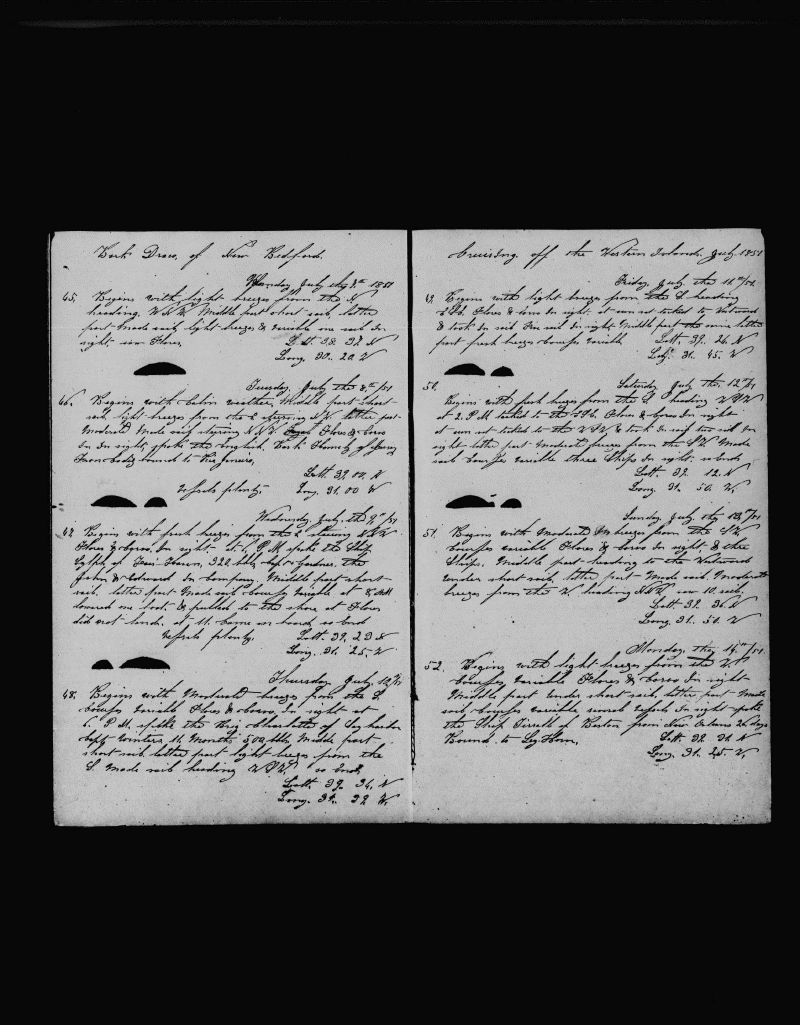 Bark Draco, of New Bedford.
Monday July the 7th 1851
45. Begins with light breeze from the N
heading, W S W. Middle part short sail, latter
part made sail, light breeze & variable one sail in
sight saw Flores,
Latt 38. 32 N
Long. 30. 20 W
Tuesday, July the 8th /51
46. Begins with Calm weather, Middle part short
sail, light breeze from the S steering NW latter part
Moderate Made sail steering NNW Flores & Corvo
In In sight, spoke the english Bark
bound to Rio Janeiro,
Latt. 39. 00. N
Vessels plenty. Long. 31. 00 W
Wednesday July, the 9th /51
47 Begins with fresh breeze from the S steering NNW
Flores & Corvo, In sight. at 1, P M spoke the Ship
of Fair Haven, 320 bbls, Capt Gardner, the
John & Edward In Company. Middle part short
sail, latter part Made sail Courses Variable at 8 AM
lowered one boat, & pulled to the shore at Flores
did not land. at 11. Came on board, so ends
Vessels plenty. Latt. 39. 23 N
Long. 31. 25. W
Thursday July, 10th /51
48. Begins with Moderate breeze from the S.
Courses Variable Flores & Corvo In sight at
6, P M, spoke the Brig of Sag harbor
Capt Winters 11, Months, 500 bbls Middle part
short sail latter part light breeze from the
S. Made sail heading W S W, so ends
Latt. 39. 34. N
Long. 31. 32 W.
Cruising. off the Western Islands. July 1851
Friday, July, the 11th /51.
49. Begins with light breeze from the S heading
Flores & Corvo In sight. at sun set tacked to Westward
& took In sail One sail In sight Middle part the same latter
part fresh breeze Courses Variable Latt. 39. 26. N
Long. 31. 45. W
Saturday July the. 12th /51
50. Begins with fresh breeze from the S heading W S W
at 2. P. M. tacked to the Flores & Corvo In sight
at sun set tacked to the W S W & took In sail two sail in
sight latter part Moderate breeze from the S W Made
sail Courses Variable three Ships In sight. so ends
Latt. 39. 12. N
Long. 31. 50. W,
Sunday July the 13th /51
51. Begins with Moderate breeze from the S W,
Courses Variable Flores & Corvo In sight. & three
Ships. Middle part heading to the Westward
under short sail, latter part Made sail. Moderate
breeze from the W heading NNW, saw 10. sail,
Latt 39. 36. N
Long. 31. 50. W
Monday, the, 14th /51.
52. Begins with light breeze from the W.
Courses, Variable Flores & Corvo In sight
Middle part under short sail, latter part Made
sail Courses Variable several Vessels In sight spoke
the Ship of Boston from New Orleans 26 days
Bound to Leg Horn, Latt. 39 31 N
Long. 31. 25. W,